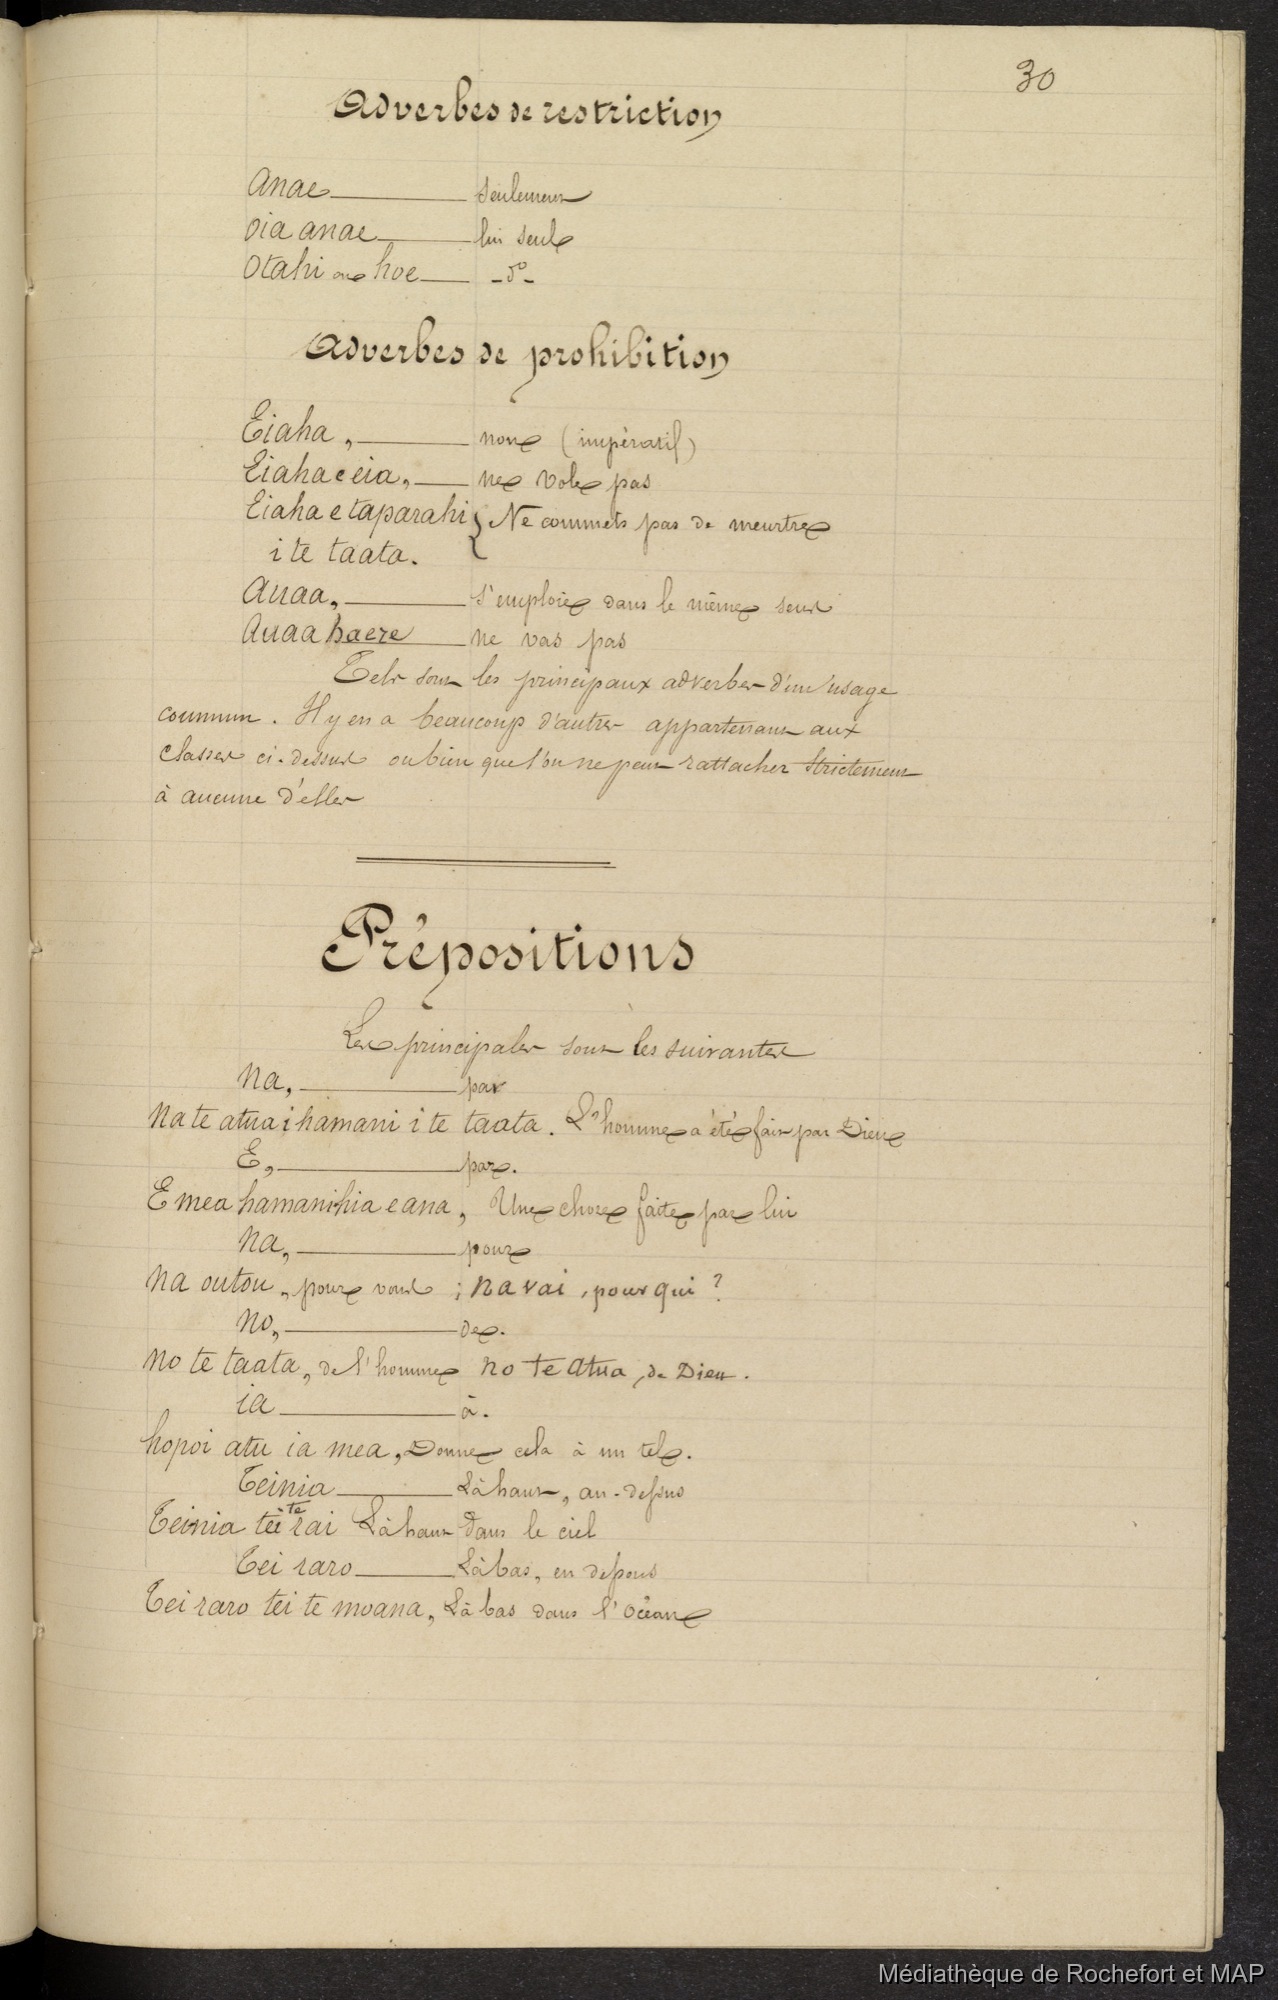 30
Adverbes de restriction
Anae seulement
Oia anae lui seul
Otahi ou hoe -do-
Adverbes de prohibition
Eiaha, non (impératif)
Eiaha e eia, ne vole pas
Eiaha e taparahi } Ne commets pas de meurtre
i te taata.
Auaa, s'emploie dans le même sens
Auaa haere ne vas pas
Tels sont les principaux adverbes d'un usage
commun. Il y en a beaucoup d'autres appartenant aux
classes ci-dessus ou bien que l'on ne peut rattacher strictement
à aucune d'elles
Prépositions
Les principales sont les suivantes
Na, par
Na te atua i hamani i te taata. L'homme a été fait par Dieu
E, par.
E mea hamanihia e ana, Une chose faite par lui
Na, pour
Na outou, pour vous ; na vai, pour qui ?
No, de.
No te taata, de l'homme no te Atua, de Dieu.
ia à.
hopoi atu ia mea, Donne cela à un tel.
Teinia Là haut, au-dessus
Teinia tei te rai Là haut dans le ciel
Tei raro Là bas, en dessous
Tei raro tei te moana, Là bas dans l'Océan
Médiathèque de Rochefort et MAP